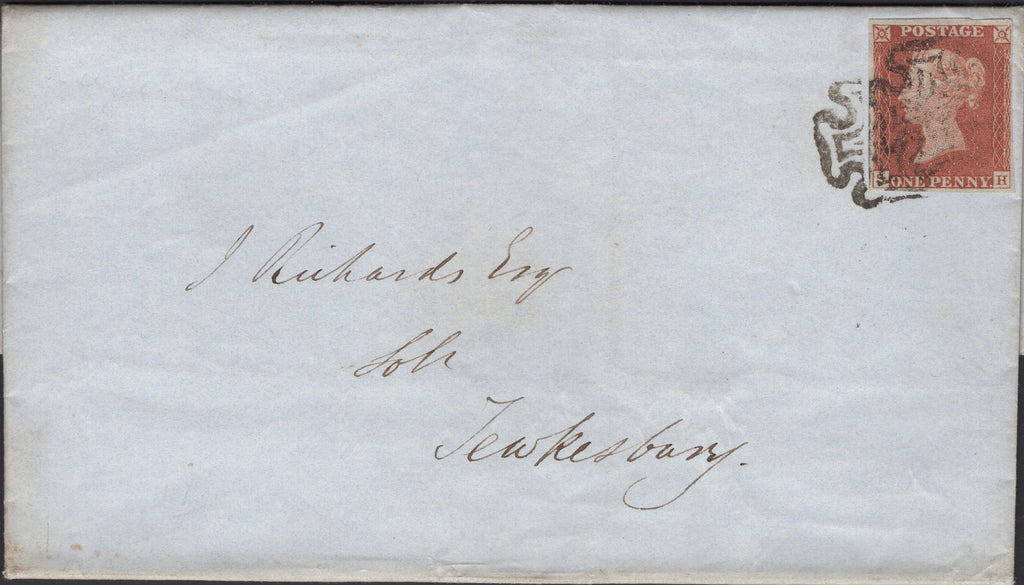 POSTAGE
S ONE PENNY. H
J Richards Esq
Solr
Tewkesbury.